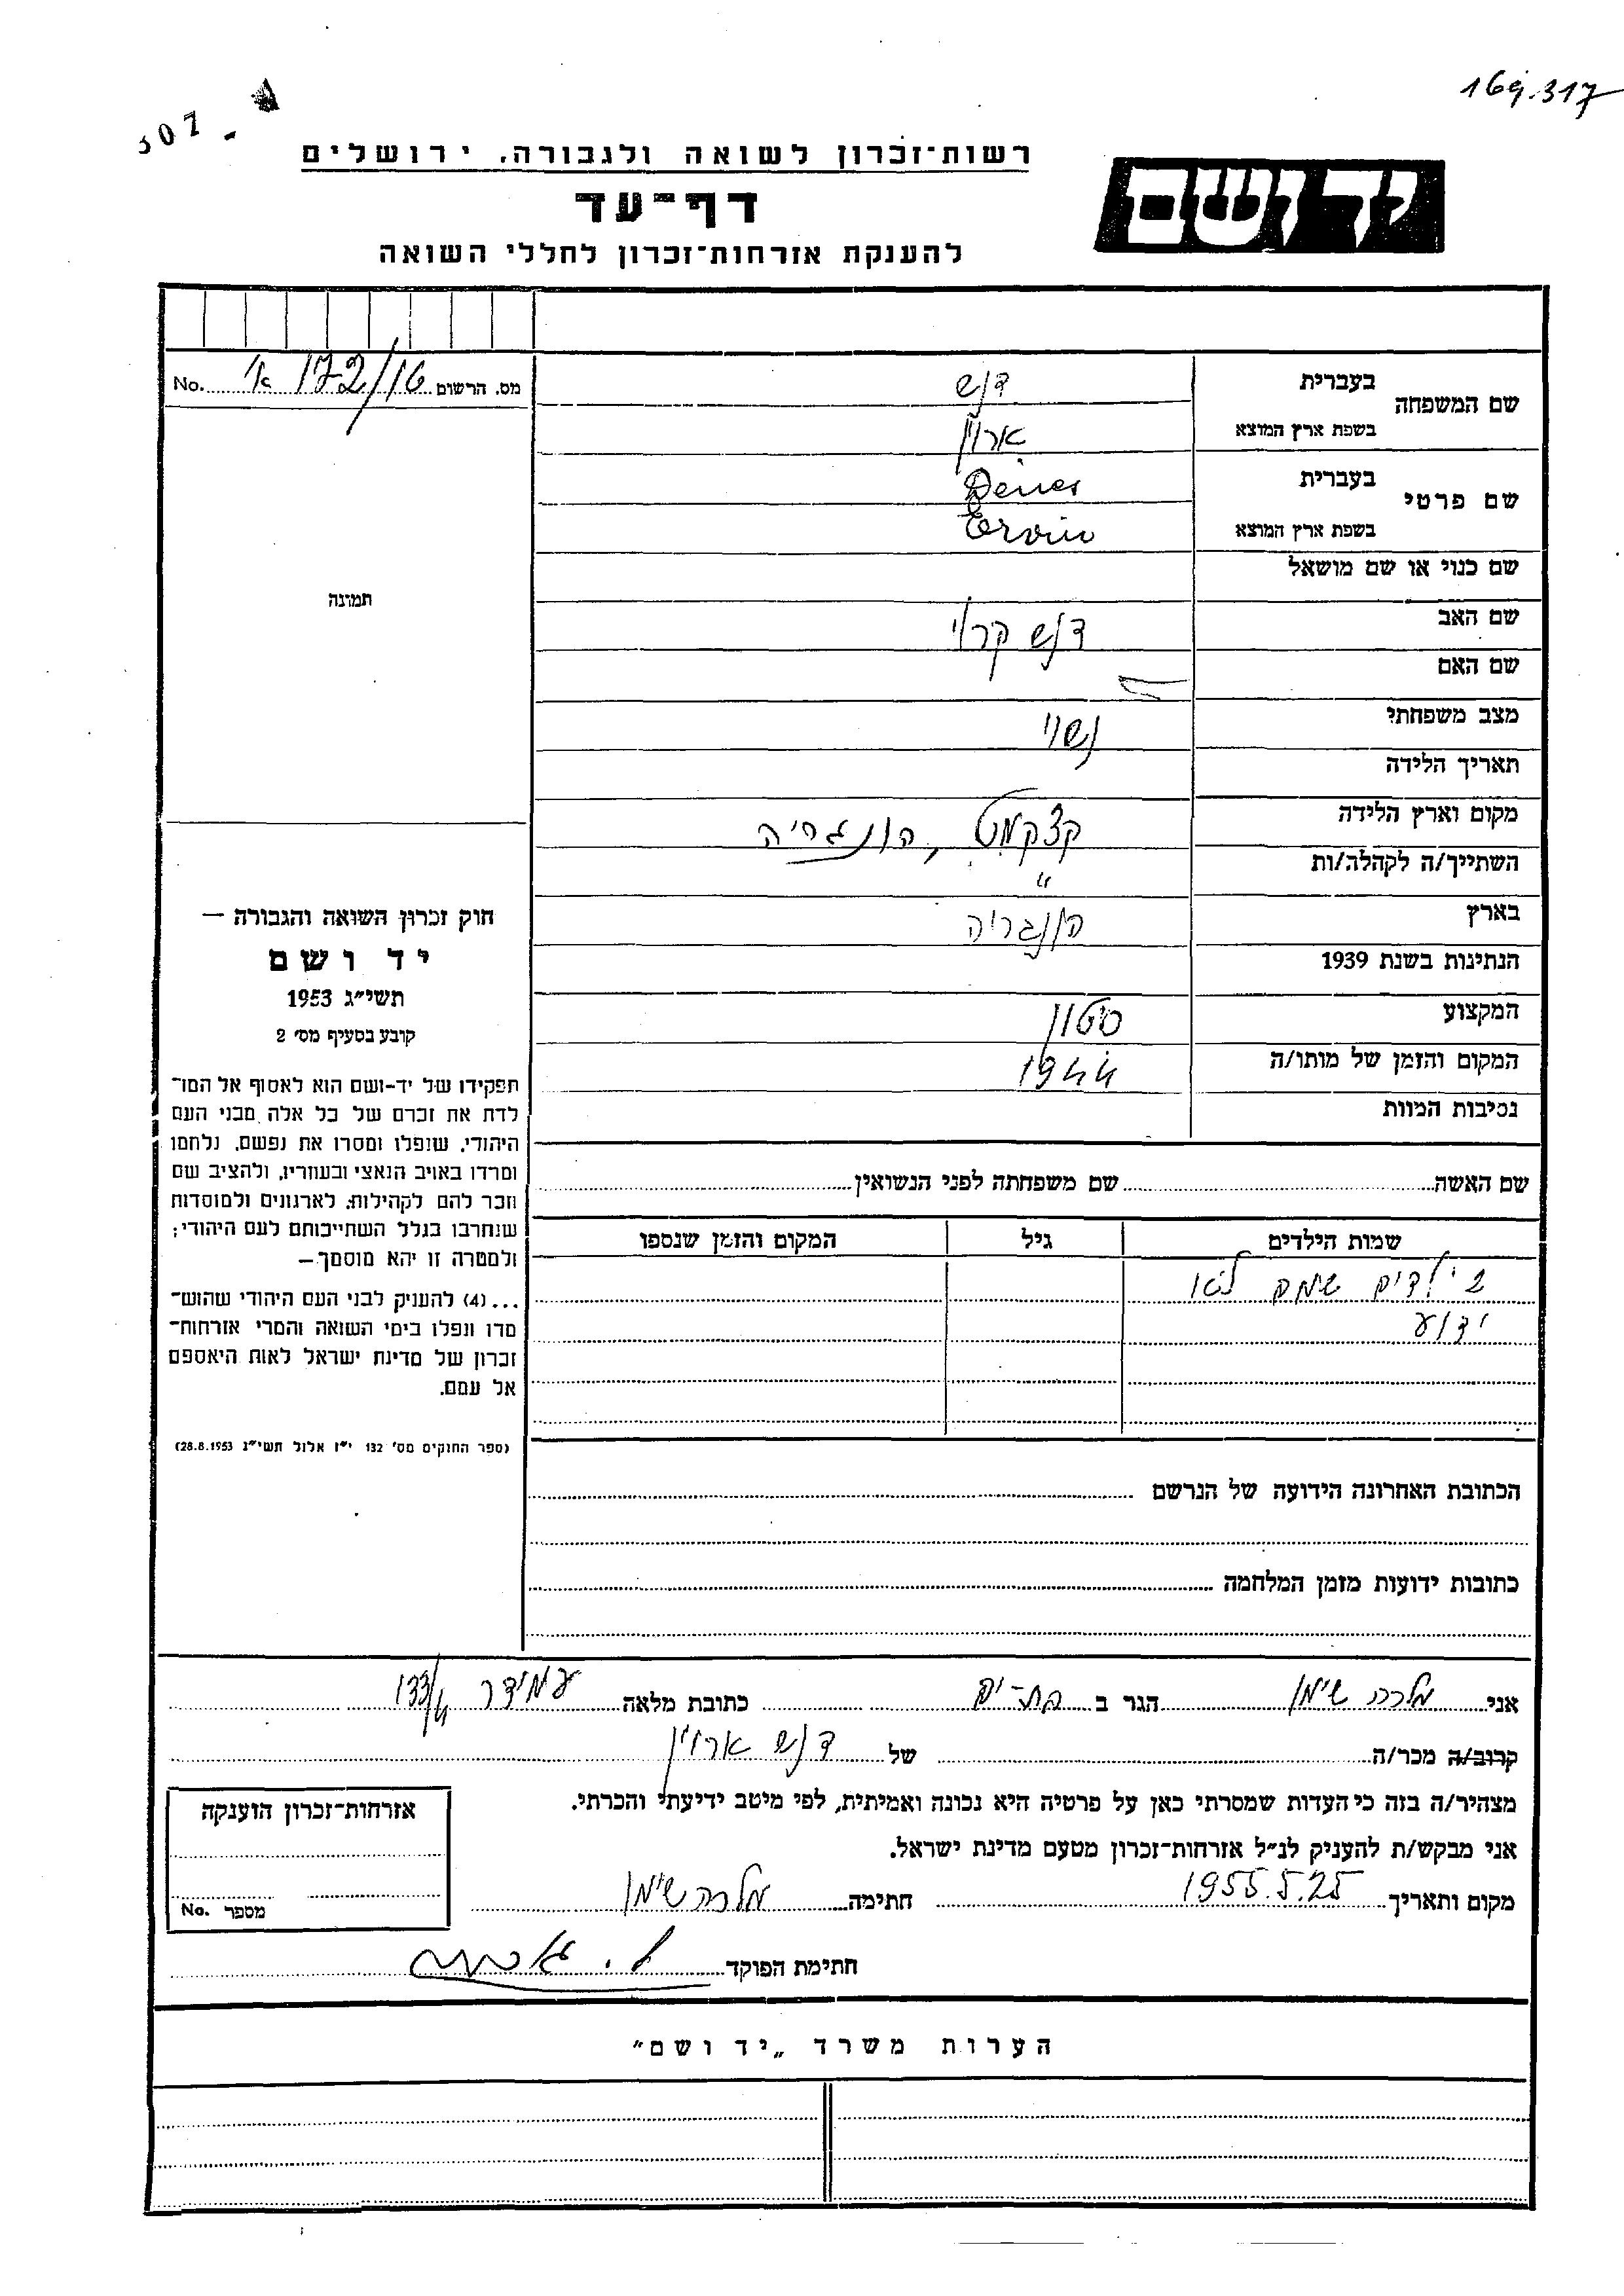 169.317
307-
רשות־זכרון לשואה ולגבורה, ירושלים
יד ושם
דף־עד
להענקת אזרחות־זכרון לחללי השואה
No. 172/16 מס. הרשום
שם המשפחה בעברית דנש
בשפת ארץ המוצא ארוין
שם פרטי בעברית Dénes
בשפת ארץ המוצא Ervin
שם כנוי או שם מושאל
תמונה
שם האב דנש קרוי
שם האם —
מצב משפחתי נשוי
תאריך הלידה
מקום וארץ הלידה קצקמט, הונגריה
השתייך/ה לקהלה/ות "
בארץ הונגריה
הנתינות בשנת 1939
המקצוע סיטון
המקום והזמן של מותו/ה 1944
נסיבות המוות
חוק זכרון השואה והגבורה —
יד ושם
תשי״ג 1953
קובע בסעיף מס׳ 2
תפקידו של יד-ושם הוא לאסוף אל המו־
לדת את זכרם של כל אלה מבני העם
היהודי, שנפלו ומסרו את נפשם, נלחמו
ומרדו באויב הנאצי ובעוזריו, ולהציב שם
וזכר להם לקהילות, לארגונים ולמוסדות
שנחרבו בגלל השתייכותם לעם היהודי;
ולמטרה זו יהא מוסמך—
...(4) להעניק לבני העם היהודי שהוש־
מדו ונפלו בימי השואה והמרי אזרחות־
זכרון של מדינת ישראל לאות היאספם
אל עמם.
(ספר החוקים מס׳ 132 י״ז אלול תשי״ג 28.8.1953)
שם האשה שם משפחתה לפני הנשואין
שמות הילדים גיל המקום והזמן שנספו
2 ילדים שמם לא
ידוע
הכתובת האחרונה הידועה של הנרשם
כתובות ידועות מזמן המלחמה
אני מלכה שימן הגר ב בת-ים כתובת מלאה עמידר 133/4
קרוב/ה מכר/ה של דנש ארוין
מצהיר/ה בזה כי העדות שמסרתי כאן על פרטיה היא נכונה ואמיתית, לפי מיטב ידיעתי והכרתי.
אני מבקש/ת להעניק לנ״ל אזרחות־זכרון מטעם מדינת ישראל.
מקום ותאריך 1955.5.25 חתימה מלכה שימן
חתימת הפוקד
אזרחות־זכרון הוענקה
מספר No.
הערות משרד „יד ושם״